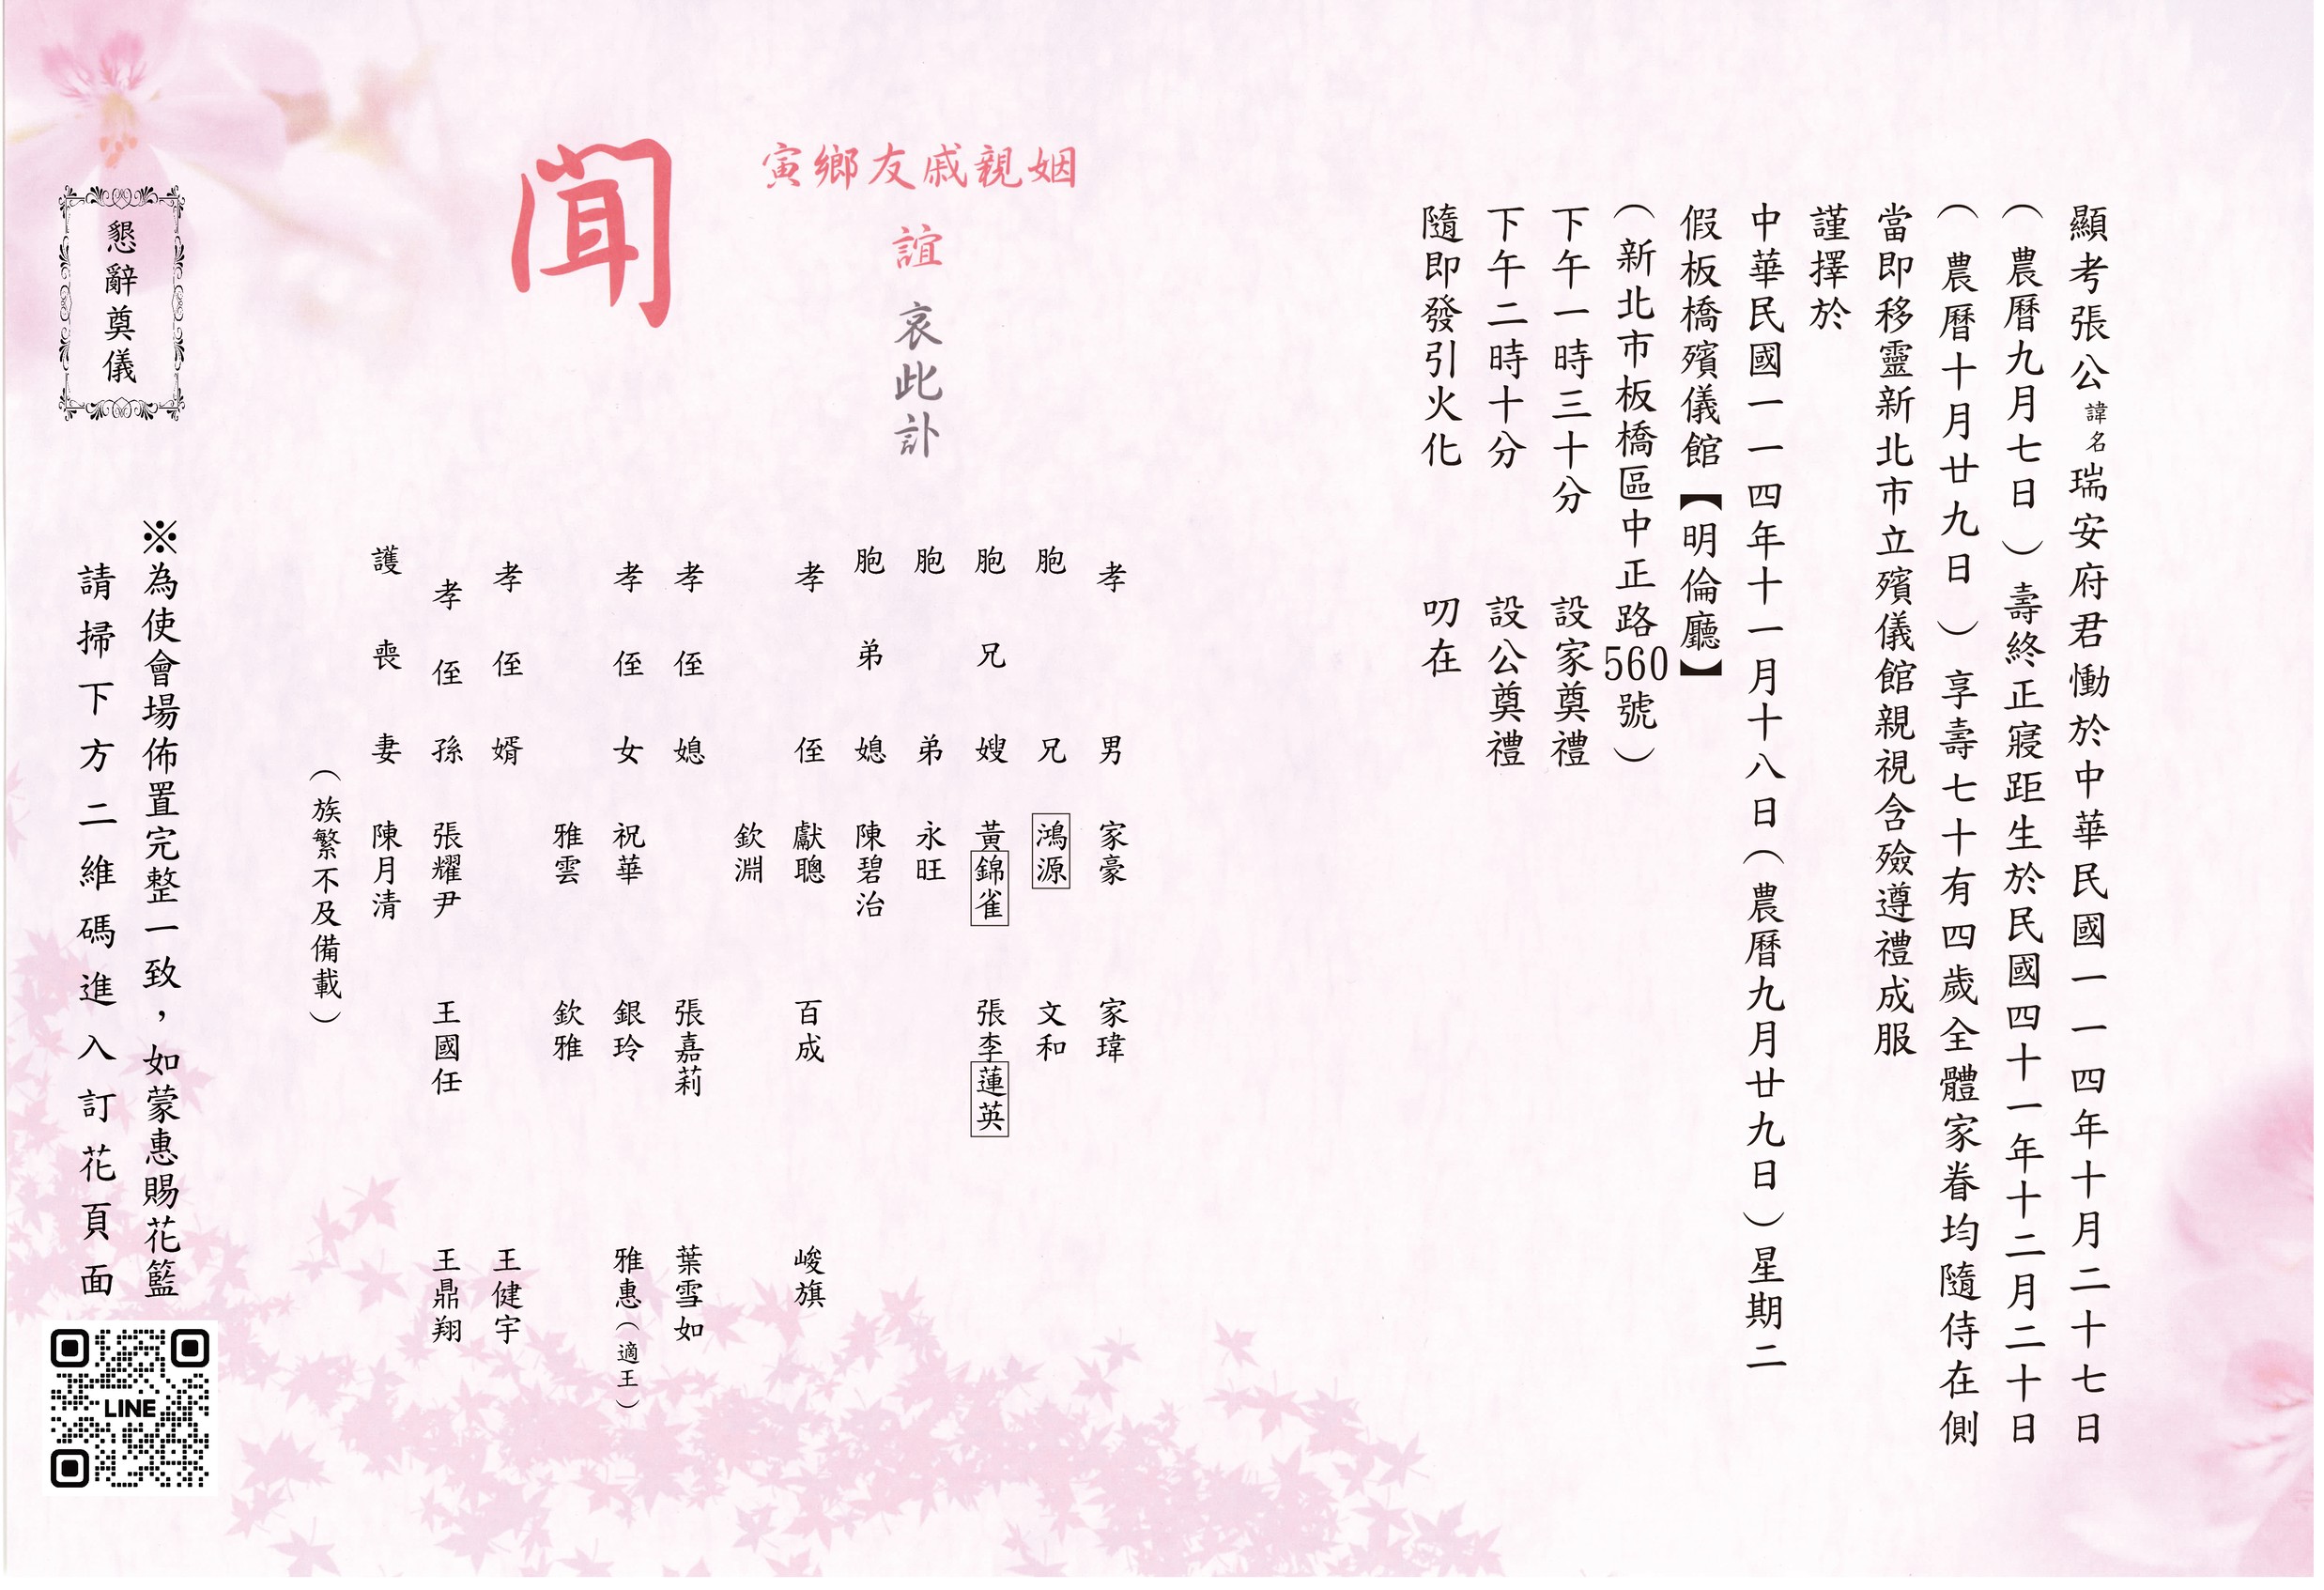 顯考張公諱名瑞安府君慟於中華民國一一四年十月二十七日
（農曆九月七日）壽終正寢距生於民國四十一年十二月二十日
（農曆十月廿九日）享壽七十有四歲全體家眷均隨侍在側
當即移靈新北市立殯儀館親視含殮遵禮成服
謹擇於
中華民國一一四年十一月十八日（農曆九月廿九日）星期二
假板橋殯儀館【明倫廳】
（新北市板橋區中正路560號）
下午一時三十分 設家奠禮
下午二時十分 設公奠禮
隨即發引火化 叨在
姻親戚友鄉寅
誼 哀此訃
聞
孝男 家豪 家瑋
胞兄 鴻源 文和
胞兄嫂 黃錦雀 張李蓮英
胞弟 永旺
胞弟媳 陳碧治
孝侄 獻聰 百成 峻旗
欽淵
孝侄媳 張嘉莉 葉雪如
孝侄女 祝華 銀玲 雅惠（適王）
雅雲 欽雅
孝侄婿 王健宇
孝侄孫 張耀尹 王國任 王鼎翔
護喪妻 陳月清
（族繁不及備載）
※為使會場佈置完整一致，如蒙惠賜花籃
請掃下方二維碼進入訂花頁面
懇辭奠儀
LINE